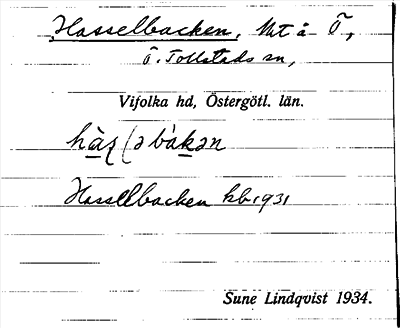 Hasselbacken, Utt å Ö,
Ö. Tollstads sn,
Vifolka hd, Östergötl. län.
hàs(ə bákən
Hasselbacken kb. 1931
Sune Lindqvist 1934.